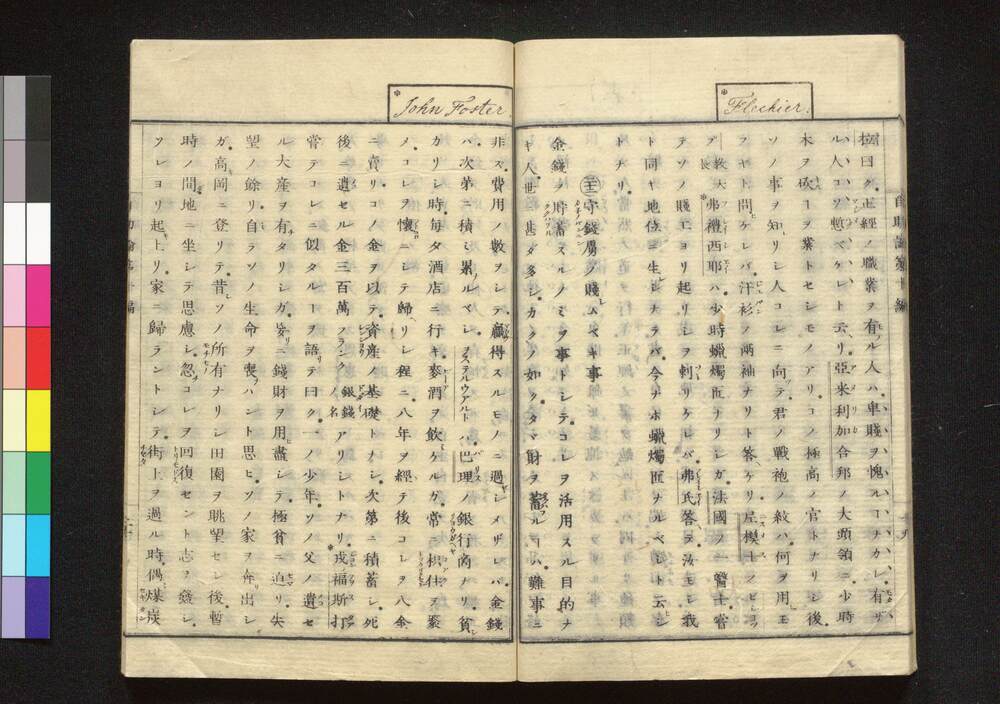 Flechier.
拉曰ク正經ノ職業ヲ有ル人ハ卑賤ヲ愧ルコナカレ有ザ
ル人コソ慙ベケレト云リ亞米利加合邦ノ大頭領ニ少時
木ヲ砍ーヲ業トセシモノアリコノ極高ノ官トナリシ後
ソノ事ヲ知リシ人コレニ向テ君ノ戰袍ノ紋ハ何ヲ用玉
フヤト問ケレバ汗衫ノ兩袖ナリト答ヘケリ
教大長弗禮西耶ハ少時蠟燭匠ナリシガ法國ノ一醫士嘗
テソノ賤工ヨリ起リシヲ刺リケレバ弗氏答ヲ汝モシ我
ト同ヤ地位ニ生レシナラバ今ナホ蠟燭匠ナルベシト云シ
トナリ
守錢虜ノ賤ムベキ事
金錢ヲ貯蓄スルノミヲ事トシテコレヲ活用スル目的ナ
キ人世ニ甚ダ多シカクノ如クタマ財ヲ蓄ルコハ難事ニ
John Foster
非ズ費用ノ數ヲシテ贏得スルモノニ過シメザレバ金錢
ハ次第ニ積ミ累ルベシヲステルウアルトハ巴理ノ銀行商ナリ貧
カリシ時毎夕酒店ニ行キ麥酒ヲ飲ケルガ常ニ栱栓ヲ
メコレヲ懷ニシテ歸ヘリシ程ニ八年ヲ經テ後コレヲ八金
ニ賣リコノ金ヲ以テ資産ノ基礎トナシ次第ニ積蓄シ死
後ニ遺セル金三百萬フランク銀錢ノ名アリシトナリ戎福斯打
嘗テコレニ似タルーヲ語テ曰ク一ノ少年ソノ父ノ遺セ
ル大産ヲ有タリシガ妄ニ錢財ヲ用盡シテ極貧ニ迫リ失
望ノ餘リ自ラソノ生命ヲ喪ハント思ヒソノ家ヲ奔出シ
ガ高岡ニ登リテ昔ソノ所有ナリシ田園ヲ眺望セシ後暫
時ノ間地ニ坐シテ思慮シ忽コレヲ回復セント志ヲ發シ
ソレヨリ起上リ家ニ歸ラントシテ街上ヲ過ル時偶煤炭